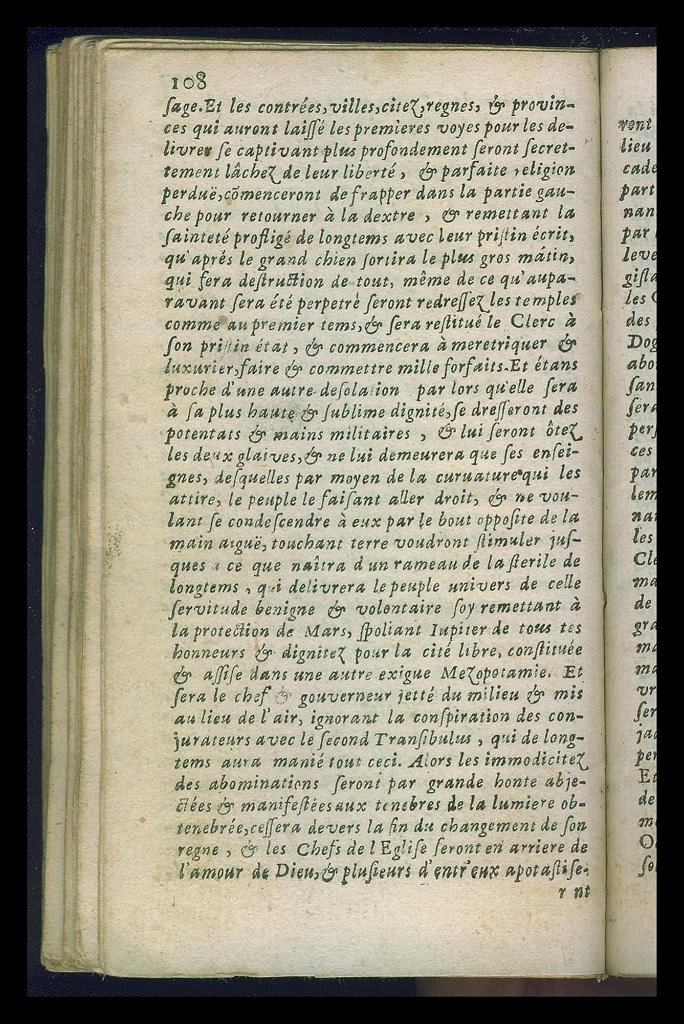 108
ſage.Et les contrées,villes,citez,regnes, & provin-
ces qui auront laiſſé les premieres voyes pour les de-
livrer ſe captivant plus profondement ſeront ſecret-
tement lâchez de leur liberté, & parfaite religion
perduë,cõmenceront de frapper dans la partie gau-
che pour retourner à la dextre, & remettant la
ſainteté profligé de longtems avec leur priſtin écrit,
qu'aprés le grand chien ſortira le plus gros mátin,
qui fera deſtruction de tout, même de ce qu'aupa-
ravant ſera été perpetrè ſeront redreſſez les temples
comme au premier tems,& ſera reſtitué le Clerc à
ſon priſtin état, & commencera à meretriquer &
luxurier,faire & commettre mille forfaits.Et étans
proche d'une autre deſolation par lors qu'elle ſera
à ſa plus haute & ſublime dignité,ſe dreſſeront des
potentats & mains militaires, & lui ſeront ôtez
les deux glaives,& ne lui demeurera que ſes enſei-
gnes, deſquelles par moyen de la curuature qui les
attire, le peuple le faiſant aller droit, & ne vou-
lant ſe condeſcendre à eux par le bout oppoſite de la
main aiguë, touchant terre voudront ſtimuler juſ-
ques a ce que naîtra d'un rameau de la ſterile de
longtems, qui delivrera le peuple univers de celle
ſervitude benigne & volontaire ſoy remettant à
la protection de Mars, ſpoliant Iupiter de tous tes
honneurs & dignitez pour la cité libre, conſtituée
& aſſiſe dans une autre exigue Mezopotamie. Et
ſera le chef & gouverneur jetté du milieu & mis
au lieu de l'air, ignorant la conſpiration des con-
jurateurs avec le ſecond Tranſibulus, qui de long-
tems aura manié tout ceci. Alors les immodicitez
des abominations ſeront par grande honte abje-
ctées & manifeſtées aux tenebres de la lumiere ob-
tenebrée,ceſſera devers la fin du changement de ſon
regne, & les Chefs de l'Egliſe ſeront en arriere de
l'amour de Dieu,& pluſieurs d'entr'eux apotaſtiſe-
r nt
vent
lieu
cade
part
nan
par
leve
giſla
les
des
Dog
abo
ſan
ſera
perſ
ces
par
lem
nan
les
Cle
ma
de
gra
ma
ma
vr
ſer
jad
per
Et
de
m
O
ſo